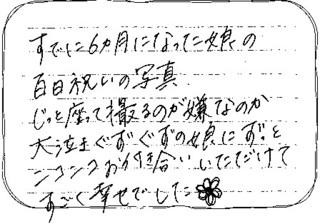 すでに6ヵ月になった娘の
百日祝いの写真
じっと座って撮るのが嫌なのか
大泣きぐずぐずの娘にずっと
ニコニコお付き合いいただけて
すごく幸せでした